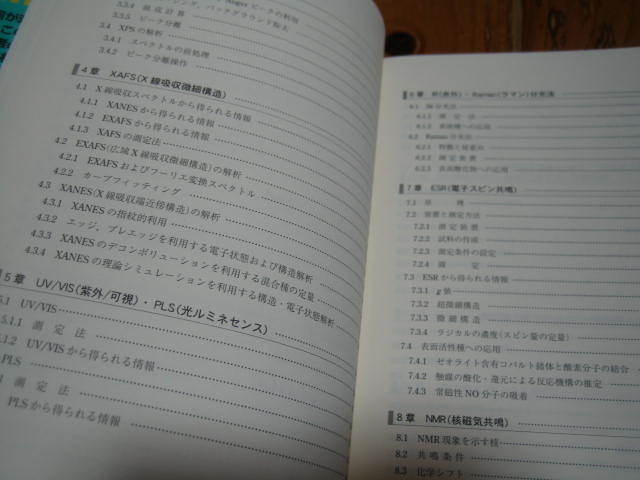 3.5.5 ピーク分離
3.4 XPSの解析
3.4.1 スペクトルの前処理
3.4.2 ピーク分離操作
4章 XAFS(X線吸収微細構造)
4.1 X線吸収スペクトルから得られる情報
4.1.1 XANESから得られる情報
4.1.2 EXAFSから得られる情報
4.1.3 XAFSの測定法
4.2 EXAFS(広域X線吸収微細構造)の解析
4.2.1 EXAFSおよびフーリエ変換スペクトル
4.2.2 カーブフィッティング
4.3 XANES(X線吸収端近傍構造)の解析
4.3.1 XANESの指紋的利用
4.3.2 エッジ，プレエッジを利用する電子状態および構造解析
4.3.3 XANESのデコンボリューションを利用する混合種の定量
4.3.4 XANESの理論シミュレーションを利用する構造・電子状態解析
5章 UV/VIS(紫外/可視)・PLS(光ルミネセンス)
5.1 UV/VIS
5.1.1 測定法
5.1.2 UV/VISから得られる情報
PLS
測定法
PLSから得られる情報
6章 IR(赤外)・Raman(ラマン)分光法
6.1
6.1.1 測定法
6.1.2
6.2 Raman分光法
6.2.1
6.2.2 測定装置
6.2.3
7章 ESR(電子スピン共鳴)
7.1 原理
7.2 装置と測定方法
7.2.1 測定装置
7.2.2 試料の作成
7.2.3 測定条件の設定
7.2.4 測定
7.3 ESRから得られる情報
7.3.1 g値
7.3.2 超微細構造
7.3.3 微細構造
7.3.4 ラジカルの濃度(スピン量の定量)
7.4 表面活性種への応用
7.4.1 ゼオライト含有コバルト錯体と酸素分子の結合
7.4.2 触媒の酸化・還元による反応機構の推定
7.4.3 常磁性NO分子の吸着
8章 NMR(核磁気共鳴)
8.1 NMR現象を示す核
8.2 共鳴条件
8.3 化学シフト